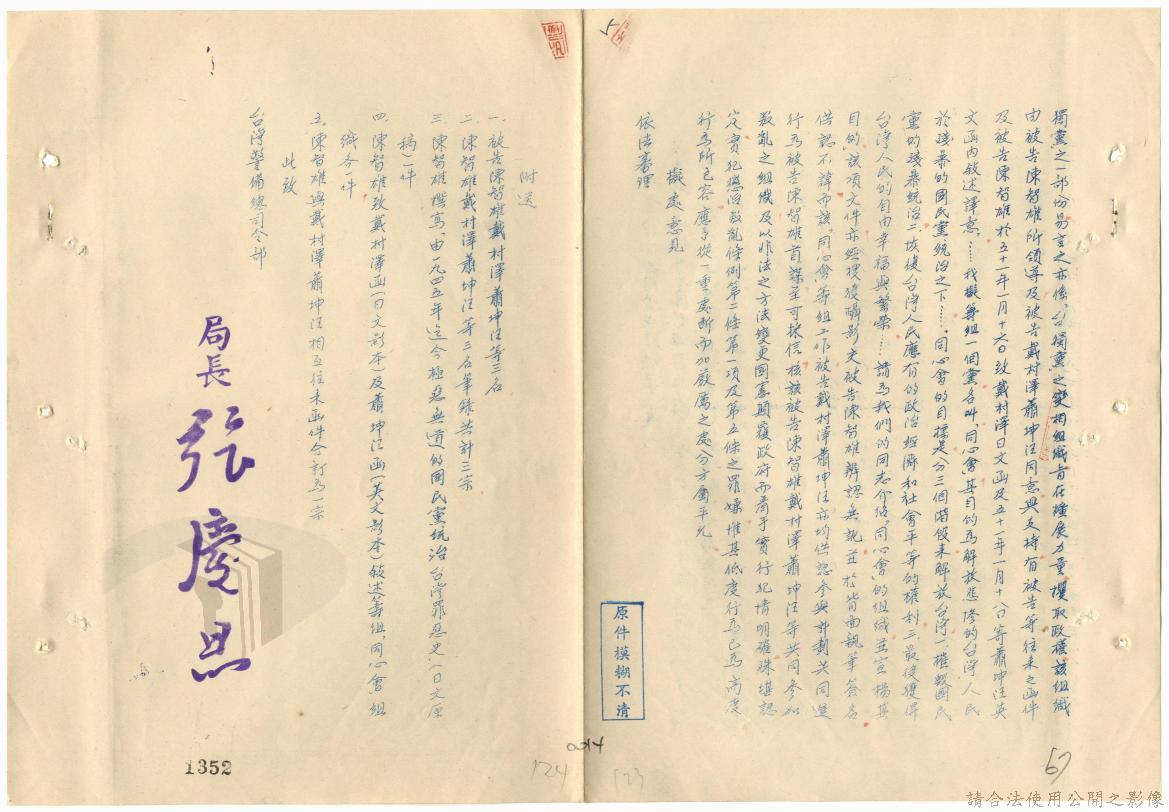 獨黨之一部份易言之亦係「台獨黨」之變相組織旨在擴展力量攫取政權該組織
由被告陳智雄所領導及被告戴村澤蕭坤汪同意與支持有被告等往來之函件
及被告陳智雄於五十一年一月十六日致戴村澤日文函及五十一年一月十八日寄蕭坤汪英
文函內敘述譯意……我擬籌組一個黨名叫「同心會」其目的為解放悲慘的台灣人民
於殘暴的國民黨統治之下……「同心會的目標是分三個階段來解放台灣一摧毀國民
黨的殘暴統治二恢復台灣人民應有的政治經濟和社會平等的權利三最後獲得
台灣人民的自由幸福與繁榮……請為我們的同志介紹「同心會」的組織並宣揚其
目的」該項文件亦經搜獲攝影交被告陳智雄辨認無訛並於背面親筆簽名
供認不諱而該「同心會」籌組工作被告戴村澤蕭坤汪亦均供認參與計劃共同進
行為被告陳智雄首謀至可採信核該被告陳智雄戴村澤蕭坤汪等共同參加
叛亂之組織及以非法之方法變更國憲顛覆政府而着手實行犯情明確殊堪認
定實犯懲治叛亂條例第二條第一項及第五條之罪嫌惟其低度行為已為高度
行為所包容應予從一重處斷而加嚴厲之處分方屬平允
擬處意見
依法審理
附送
一、被告陳智雄戴村澤蕭坤汪等三名
二、陳智雄戴村澤蕭坤汪等三名筆錄共計三宗
三、陳智雄撰寫「由一九四五年迄今極惡無道的國民黨統治台灣罪惡史」(日文原
稿)一件
四、陳智雄致戴村澤函(日文影本)及蕭坤汪函(英文影本)敘述籌組「同心會」組
織各一件
五、陳智雄與戴村澤蕭坤汪相互往來函件合訂為一宗
此致
台灣警備總司令部
局長 張慶恩
原件模糊不清
1352
0014
124
123
57
5
請合法使用公開之影像